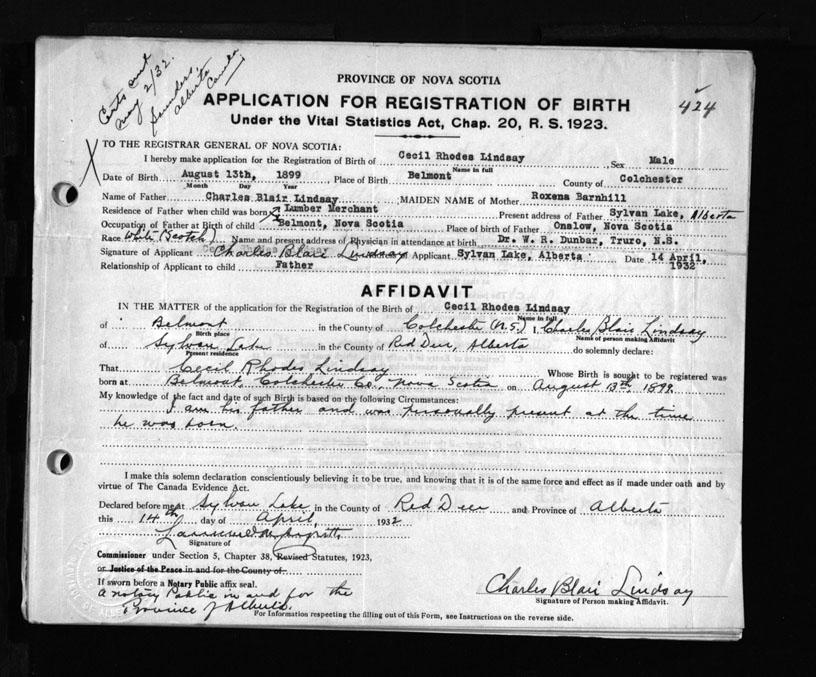 Certs sent
May 2/32.
Saunders,
Alberta
Canada
PROVINCE OF NOVA SCOTIA
APPLICATION FOR REGISTRATION OF BIRTH
424
Under the Vital Statistics Act, Chap. 20, R. S. 1923.
X
TO THE REGISTRAR GENERAL OF NOVA SCOTIA:
I hereby make application for the Registration of Birth of Cecil Rhodes Lindsay, Sex Male
Name in full
Date of Birth August 13th, 1899 Place of Birth Belmont County of Colchester
Month Day Year
Name of Father Charles Blair Lindsay MAIDEN NAME of Mother Roxena Barnhill
Residence of Father when child was born Lumber Merchant Present address of Father Sylvan Lake, Alberta
Occupation of Father at Birth of child Belmont, Nova Scotia Place of Birth of Father Onslow, Nova Scotia
Race White (Scotch) Name and present address of Physician in attendance at birth Dr. W. R. Dunbar, Truro, N.S.
Signature of Applicant Charles Blair Lindsay of Applicant Sylvan Lake, Alberta Date 14 April, 1932
Relationship of Applicant to child Father
AFFIDAVIT
IN THE MATTER of the application for the Registration of the Birth of Cecil Rhodes Lindsay
Name in full
of Belmont in the County of Colchester (N.S.) I, Charles Blair Lindsay
Birth place Name of person making Affidavit
of Sylvan Lake in the County of Red Deer, Alberta do solemnly declare:
Present residence
That Cecil Rhodes Lindsay Whose Birth is sought to be registered was
born at Belmont, Colchester Co., Nova Scotia on August 13th, 1899
My knowledge of the fact and date of such Birth is based on the following Circumstances:
I am his father and was personally present at the time
he was born.
I make this solemn declaration conscientiously believing it to be true, and knowing that it is of the same force and effect as if made under oath and by
virtue of The Canada Evidence Act.
Declared before me at Sylvan Lake in the County of Red Deer and Province of Alberta
this 14th day of April, 1932
Signature of
Commissioner under Section 5, Chapter 38, Revised Statutes, 1923,
or Justice of the Peace in and for the County of
If sworn before a Notary Public affix seal.
A notary Public in and for the
Province of Alberta.
Charles Blair Lindsay
Signature of Person making Affidavit.
For Information respecting the filling out of this Form, see Instructions on the reverse side.